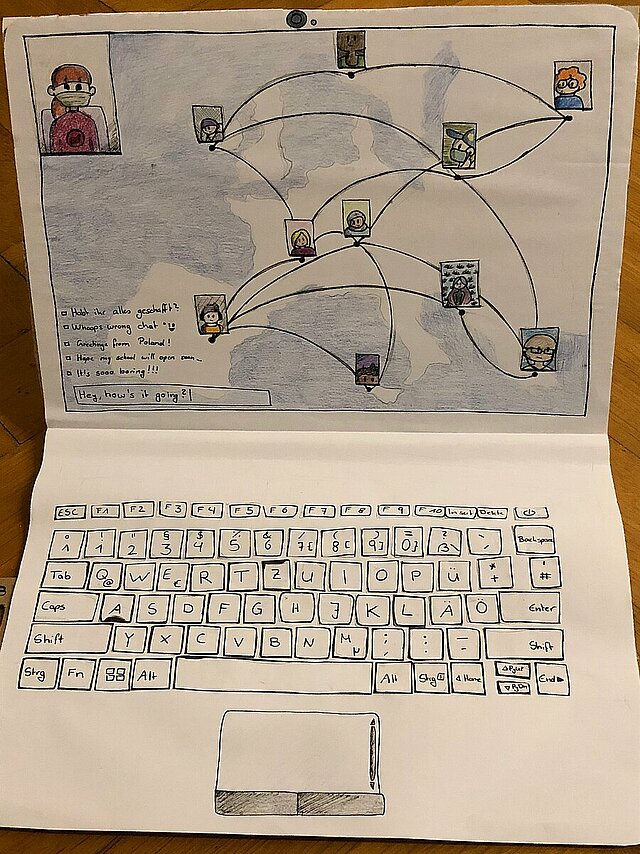 Habt ihr alles geschafft?
Whoops wrong chat
Greetings from Poland!
Hope my school will open soon
It's sooo boring!!!
Hey, how's it going?
ESC F1 F2 F3 F4 F5 F6 F7 F8 F9 F10 Insert Delete
° ! " § $ % & / ( ) = ?
^ 1 2 3 4 5 6 7{ 8[ 9] 0} ß\ ´ Backspace
Tab Q@ W E€ R T Z U I O P Ü *+ '#
Caps A S D F G H J K L Ä Ö Enter
Shift Y X C V B N Mµ ; , : . _ - Shift
Strg Fn Alt Alt Strg Home PgUp PgDn End